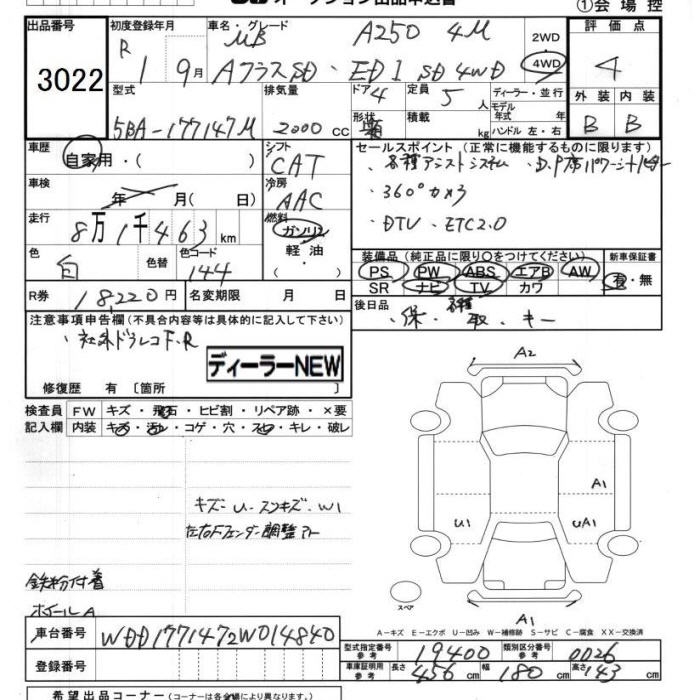 オークション出品申込書
①会場控
出品番号 3022
初度登録年月 R 1 9月
車名・グレード MB A250 4M
AクラスSD・EDI SD 4WD
2WD
4WD
評価点 4
外装 内装
B B
型式 5BA-177147M
排気量 2000 CC
ドア 4
形状 箱
定員 5人
積載 kg
ディーラー・並行
モデル年式 年式
ハンドル 左・右
車歴 自家用・( )
シフト CAT
セールスポイント (正常に機能するものに限ります)
・各種アシストシステム ・D.P席パワーシートヒーター
・360°カメラ
・DTV・ETC2.0
車検 年 月( 日)
冷房 AAC
走行 8万1千463km
燃料 ガソリン
軽油
・( )
色 白
色替
色コード 144
装備品(純正品に限り○をつけてください)
新車保証書
PS PW ABS エアB AW
SR ナビ TV カワ
有・無
R券 18,220円
名変期限 月 日
後日品 ・保・各種取・キー
注意事項申告欄(不具合内容等は具体的に記入して下さい)
・社外ドラレコF.R
ディーラーNEW
修復歴 有〔箇所 〕
検査員記入欄
FW キズ・飛石・ヒビ割・リペア跡・×要
内装 キズ・汚れ・コゲ・穴・スレ・キレ・破レ
キズ・U・スンキズ・W1
左右Fフェンダー調整アト
鉄粉付着
ホイールA
A2
A1
U1
UA1
スペア
A1
A-キズ E-エクボ U-凹み W-補修跡 S-サビ C-腐食 XX-交換済
車台番号 WDD1771472W014840
登録番号
型式指定番号 参考 19400
類別区分番号 参考 0026
車庫証明用 参考 長さ 456cm 幅 180cm 高さ 143cm
希望出品コーナー(コーナーは各会場により異なります。)